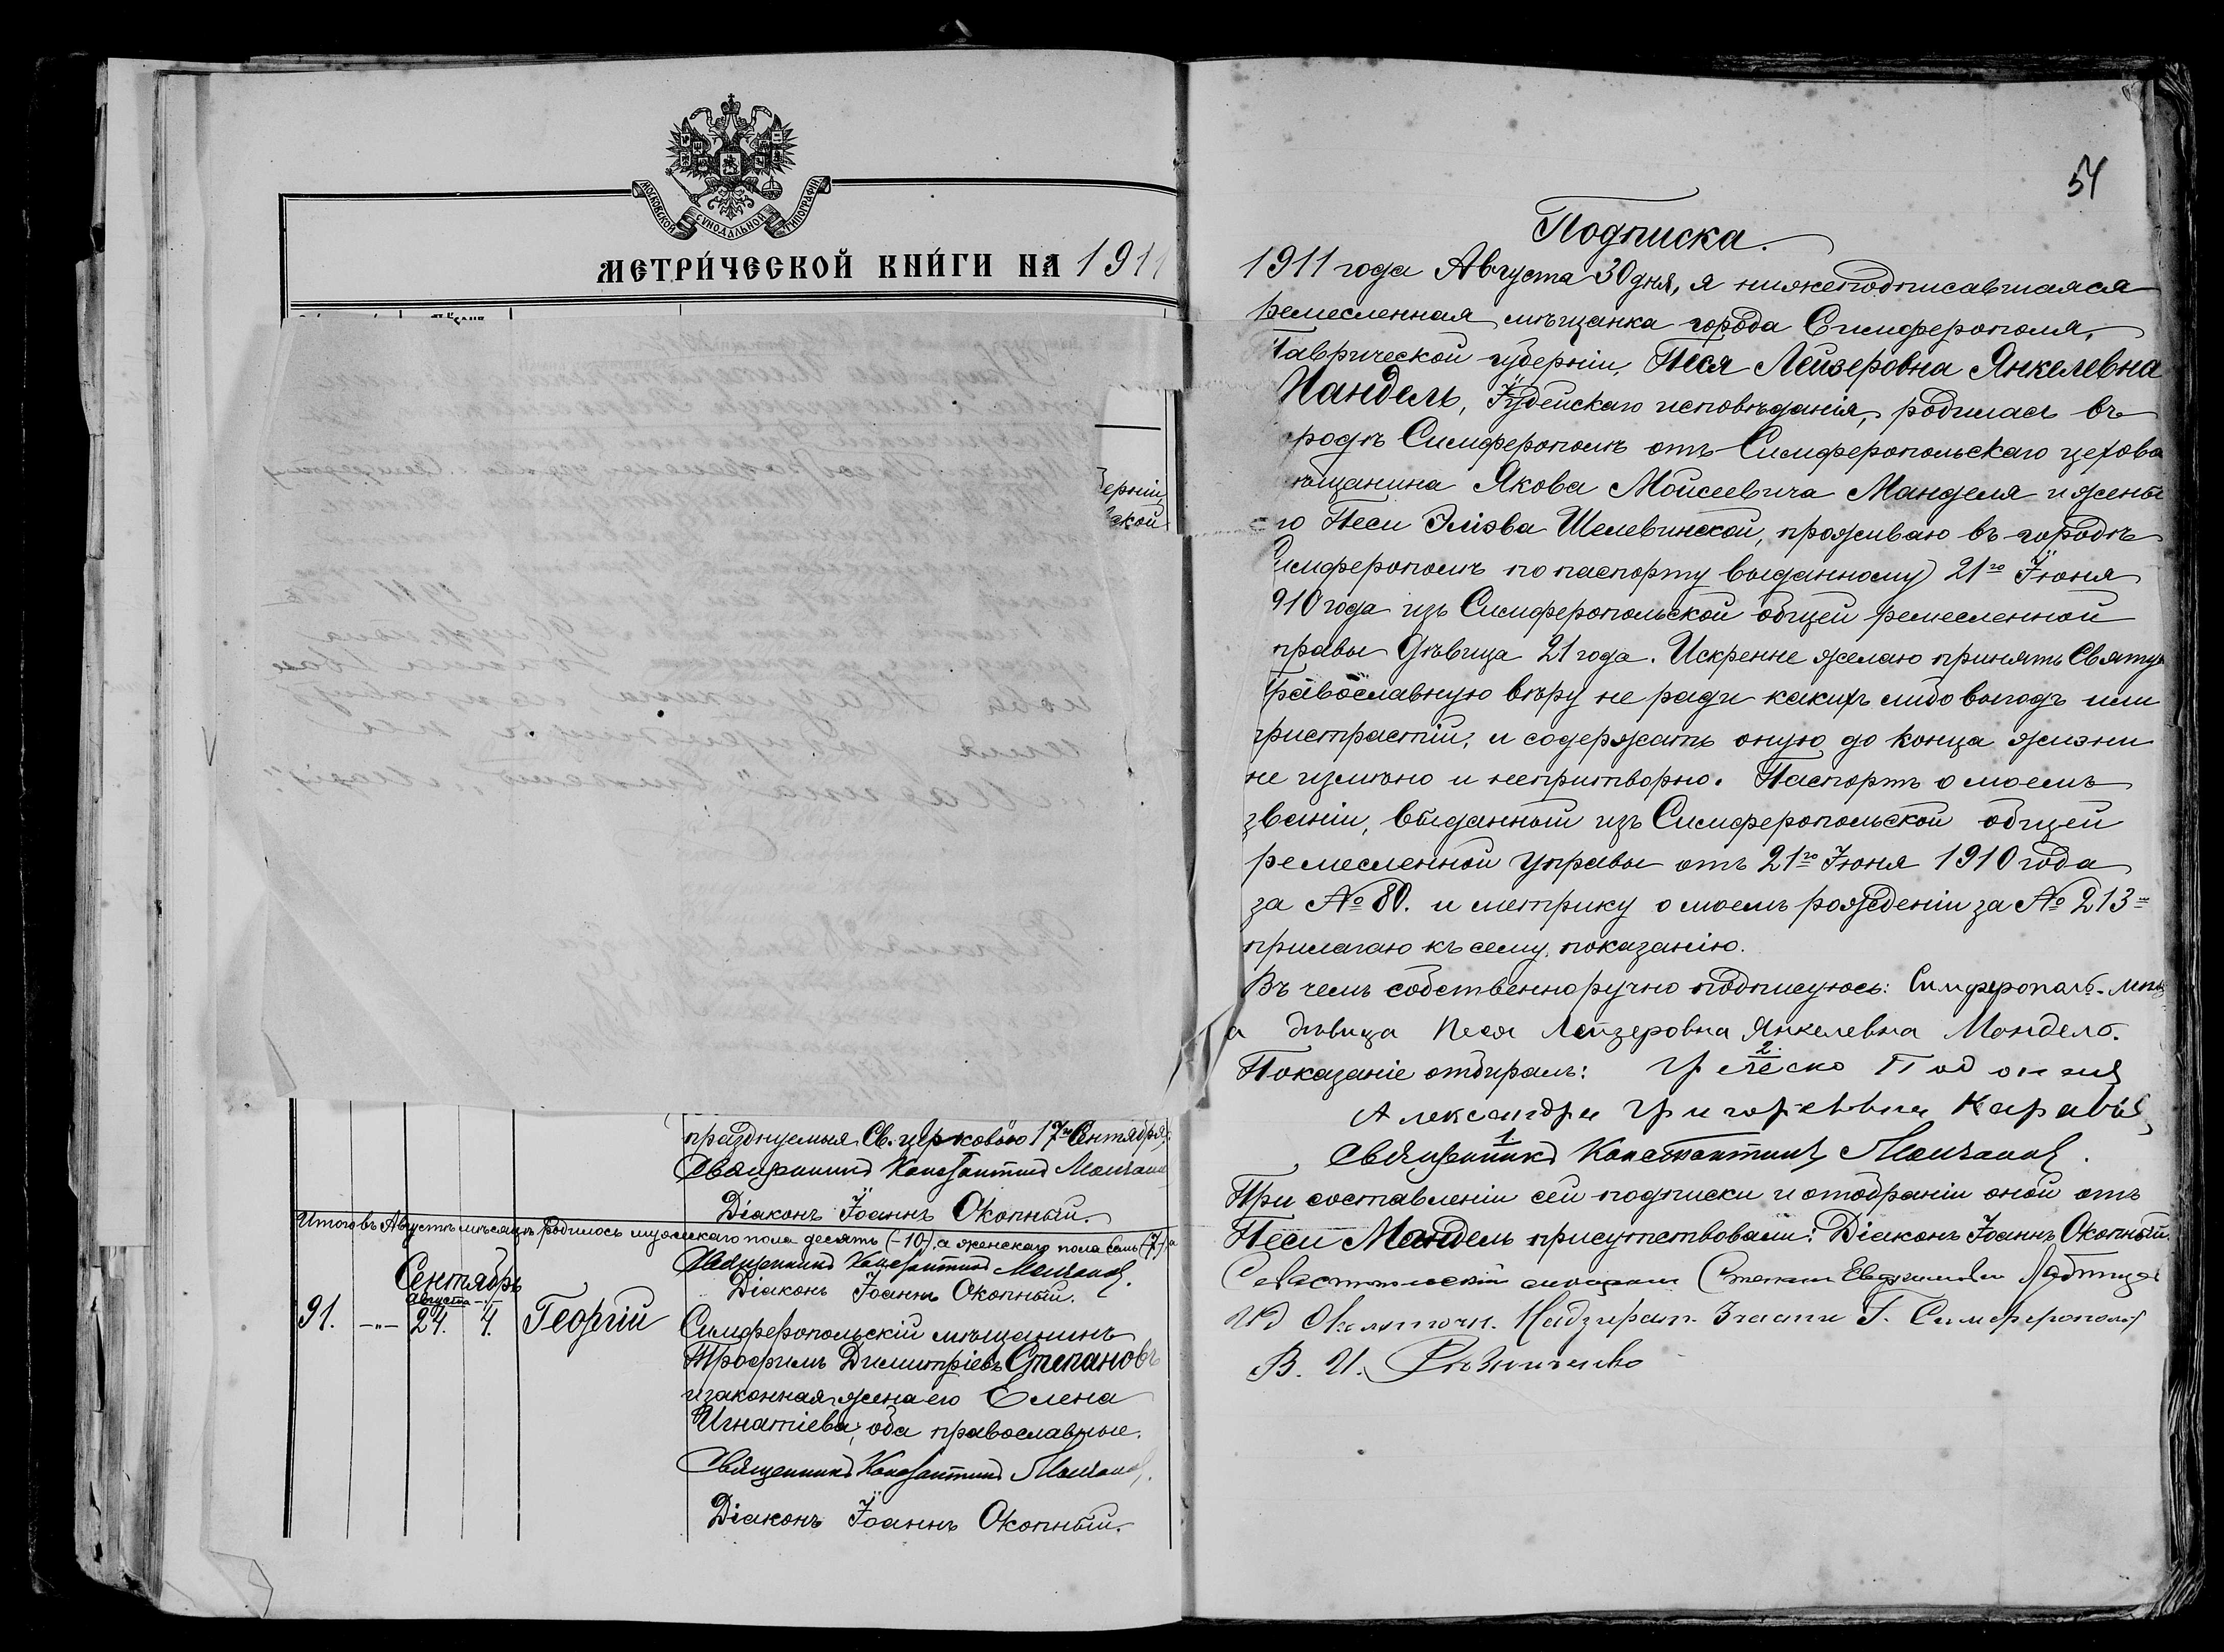 МОСКОВСКОЙ СУНОДАЛЬНОЙ ТИПОГРАФІИ
МЕТРИ́ЧЕСКОЙ КНИ́ГИ НА 1911
ерніи,
ской
празднуемыя Св. церковью 17го Сентября;
Священникъ Константинъ
Діаконъ Іоаннъ Окопный.
Итого въ Августѣ мѣсяцѣ родилось мужескаго пола десять (-10-), а женскаго пола семь (-7-)
Священникъ Константинъ
Діаконъ Іоаннъ Окопный.
Сентябрь
Августа
91. -"- 24. 4. Георгій
Симферопольскій мѣщанинъ
Трофимъ Димитріевъ Степановъ
и законная жена его Елена
Игнатіева, оба православные.
Священникъ Константинъ
Діаконъ Іоаннъ Окопный.
54
Подписка.
1911 года Августа 30 дня, я нижеподписавшаяся
ремесленная мѣщанка города Симферополя,
Таврической губерніи, Песя Лейзеровна Янкелевна
Мандель, Іудейскаго исповѣданія, родилась въ
родѣ Симферополѣ отъ Симферопольскаго цехова
ѣщанина Якова Моисеевича Манделя и жены
го Песи Эліова Шелевинской, проживаю въ городѣ
Симферополѣ по паспорту выданному 21го Іюня
910 года изъ Симферопольской общей ремесленной
правы дѣвица 21 года. Искренне желаю принять Святую
Православную вѣру не ради какихъ либо выгодъ или
пристрастій, и содержать оную до конца жизни
не измѣно и непритворно. Паспортъ о моемъ
званіи, выданный изъ Симферопольской общей
ремесленной управы отъ 21го Іюня 1910 года
за № 80. и метрику о моемъ рожденіи за № 213
прилагаю къ сему показанію.
Въ чемъ собственноручно подписуюсь: Симферополь. мѣщ
а дѣвица Песя Лейзеровна Янкелевна Мандель.
Показаніе отбиралъ: 2.
Александра Григорьевна
1. Священникъ Константинъ
При составленіи сей подписки и отобраніи оной отъ
Песи Мандель присутствовали: Діаконъ Іоаннъ Окопный.
Севастопольскій Степанъ
Околоточн. Надзират. Г. Симферополя
В. И.